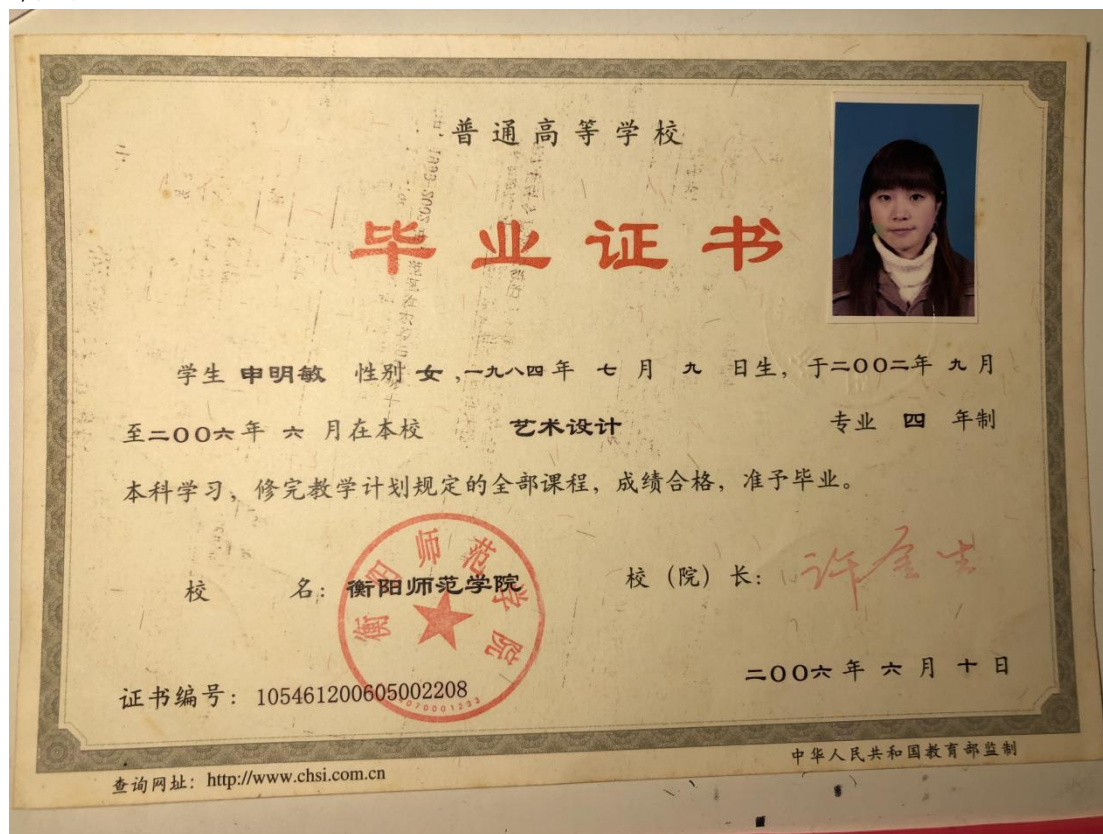 普通高等学校
毕业证书
学生 申明敏 性别 女 ,一九八四年 七 月 九 日生，于二〇〇二年 九 月
至二〇〇六年 六 月在本校 艺术设计 专业 四 年制
本科学习，修完教学计划规定的全部课程，成绩合格，准予毕业。
校 名：衡阳师范学院 校（院）长：许金生
衡阳师范学院
二〇〇六年 六 月 十 日
证书编号：105461200605002208
中华人民共和国教育部监制
查询网址：http://www.chsi.com.cn